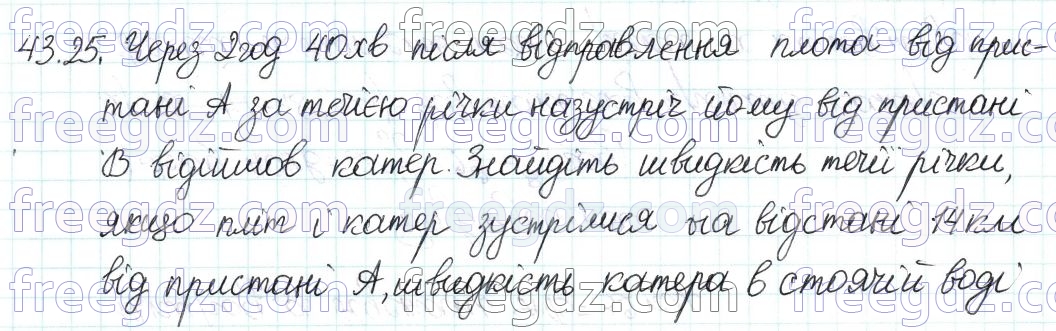 43.25. Через 2 год 40 хв після відправлення плота від прис-
тані А за течією річки назустріч йому від пристані
В відійшов катер. Знайдіть швидкість течії річки,
якщо пліт і катер зустрілися на відстані 14 км
від пристані А, швидкість катера в стоячій воді
freegdz.com